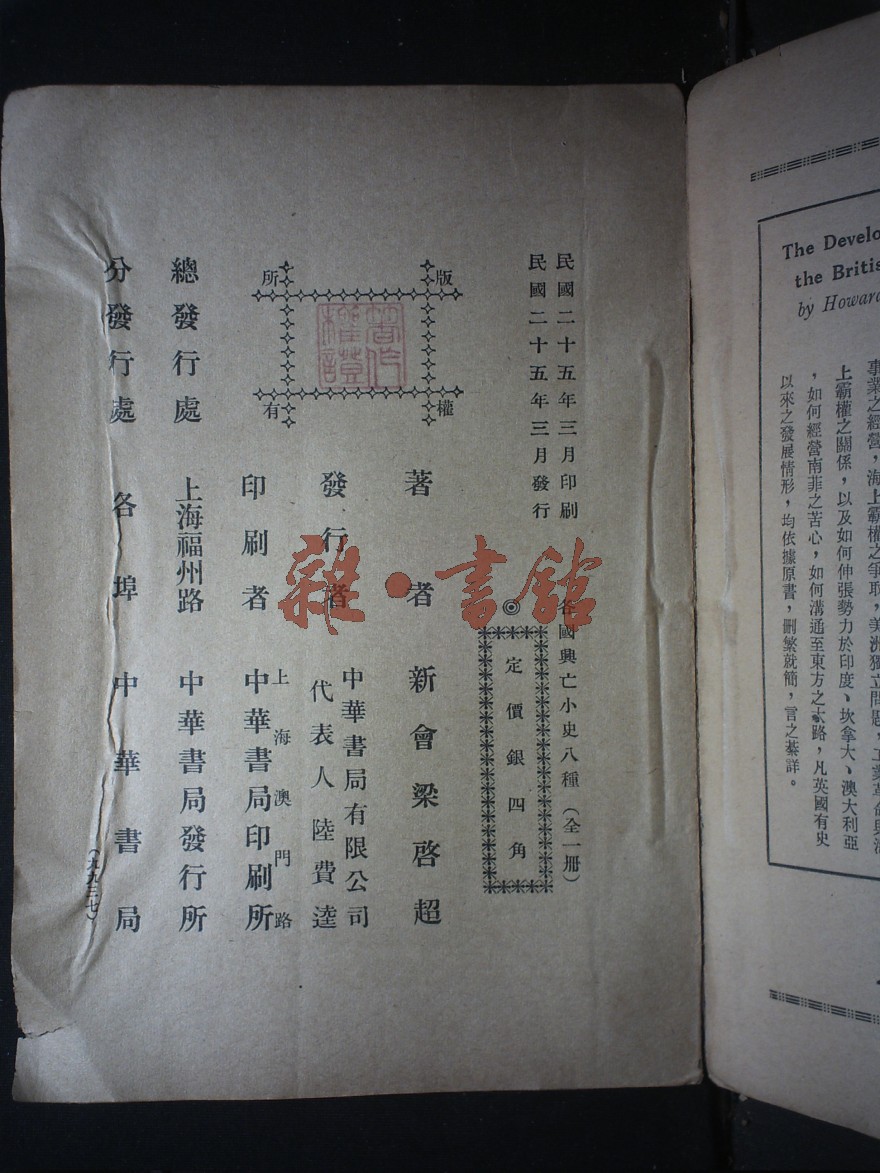 民國二十五年三月印刷
民國二十五年三月發行
各國興亡小史八種（全一册）
◎定價銀四角
版權所有
著作權證
著者 新會梁啓超
發行者 中華書局有限公司
代表人陸費逵
印刷者 上海澳門路
中華書局印刷所
總發行處 上海福州路 中華書局發行所
分發行處 各埠中華書局
（九九三七）
雜·書館
The Develo
the Britis
by Howard
事業之經營，海上霸權之爭取，美洲獨立問題，工業革命與海
上霸權之關係，以及如何伸張勢力於印度、坎拿大、澳大利亞
，如何經營南非之苦心，如何溝通至東方之大路，凡英國有史
以來之發展情形，均依據原書，刪繁就簡，言之綦詳。